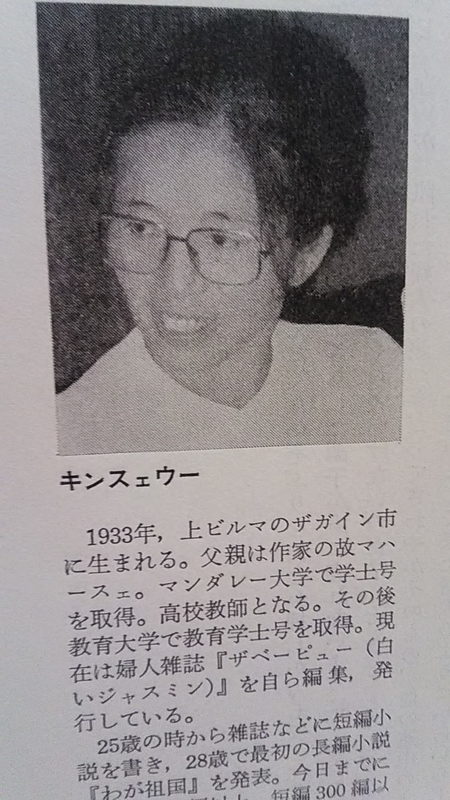 キンスェウー
1933年，上ビルマのザガイン市
に生まれる。父親は作家の故マハ
ースェ。マンダレー大学で学士号
を取得。高校教師となる。その後
教育大学で教育学士号を取得。現
在は婦人雑誌『ザベーピュー（白
いジャスミン）』を自ら編集，発
行している。
25歳の時から雑誌などに短編小
説を書き，28歳で最初の長編小説
『わが祖国』を発表。今日までに
短編300編以